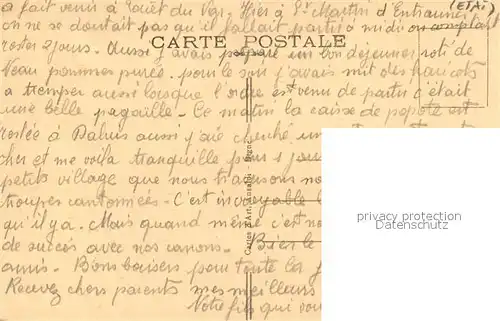 a fait venir à Puget du Var. Hier à St Martin d'Entraunes (ETAT)
on ne se doutait pas qu'il fallait partir à midi on comptait
CARTE POSTALE
rester 2 jours. Aussi j'avais préparé un bon déjeuner roti de
Veau pommes purée. pour le soir j'avais mit des haricots
a tremper aussi lorsque l'ordre est venu de partir c'était
une belle pagaille. Ce matin la caisse de popote est
restée à Daluis aussi j'ai cherché un
cher et me voila tranquille pour 1 jour
petits village que nous traversons
troupes cantonnées. C'est incroyable
qu'il y a. Mais quand même c'est
de succès avec nos canons. Bien le
amis. Bons baisers pour toute la
Recevez chers parents mes meilleurs
Notre fils qui vous
Cartes d'Art, Digne
privacy protection
Datenschutz